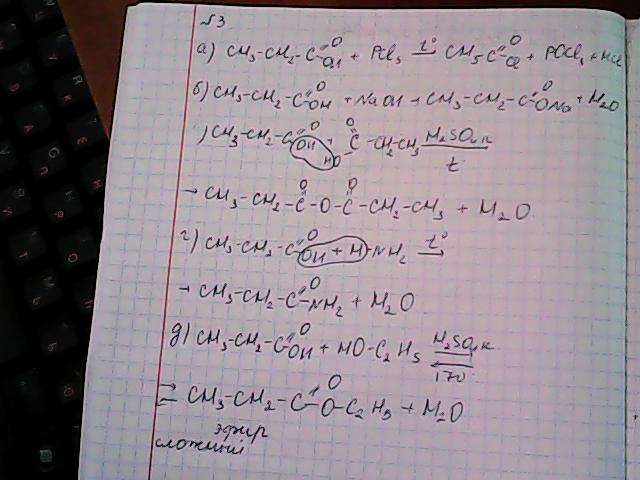 №3
а) CH₃-CH₂-C(=O)OH + PCl₅ t°→ CH₃C(=O)Cl + POCl₃ + HCl
б) CH₃-CH₂-C(=O)OH + NaOH → CH₃-CH₂-C(=O)ONa + H₂O
) CH₃-CH₂-C(=O)OH + HO-C(=O)-CH₂-CH₃ H₂SO₄ к / t
→ CH₃-CH₂-C(=O)-O-C(=O)-CH₂-CH₃ + H₂O
г) CH₃-CH₂-C(=O)OH + H-NH₂ t°→
→ CH₃-CH₂-C(=O)-NH₂ + H₂O
д) CH₃-CH₂-C(=O)OH + HO-C₂H₅ H₂SO₄ к ⇄ 170°
⇄ CH₃-CH₂-C(=O)-O-C₂H₅ + H₂O
эфир
сложный